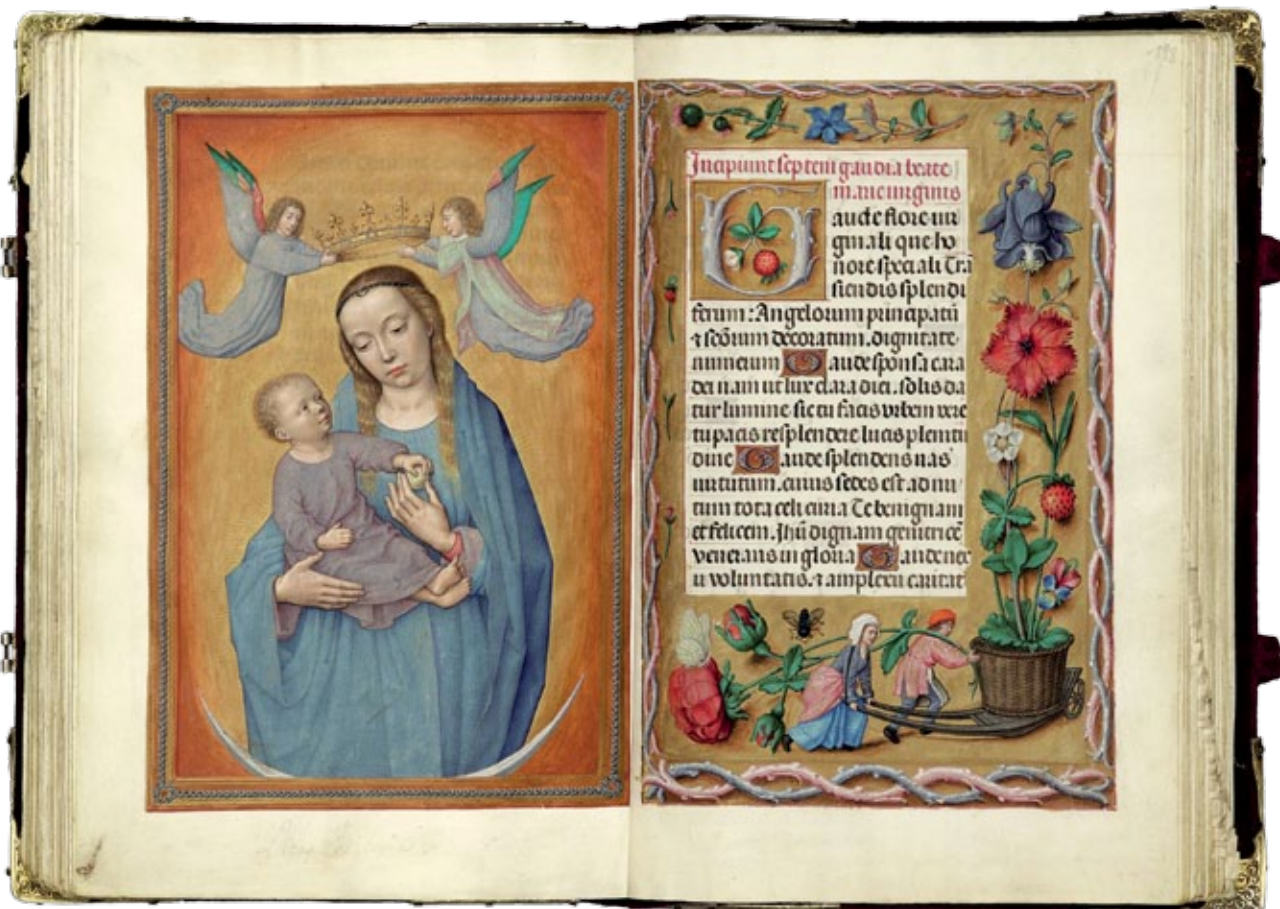 Incipiunt septem gaudia beate
marie virginis
Gaude flore vir
ginali que ho
nore speciali Trā
siendis splendi
ferum : Angelorum principatū
⁊ scōrum decoratum. dignitate
numerum Gaude sponsa cara
dei nam ut lux clara diei. solis da
tur lumine sic tu facis orbem vere
tu pacis resplendere lucis plenitu
dine Gaude splendens uas
uirtutum. cuius sedes est ad nu
tum tota celi curia Te benignam
et felicem. Jhū dignam genitricē
venerans in gloria Gaude nex
u voluntatis. ⁊ amplexu caritat